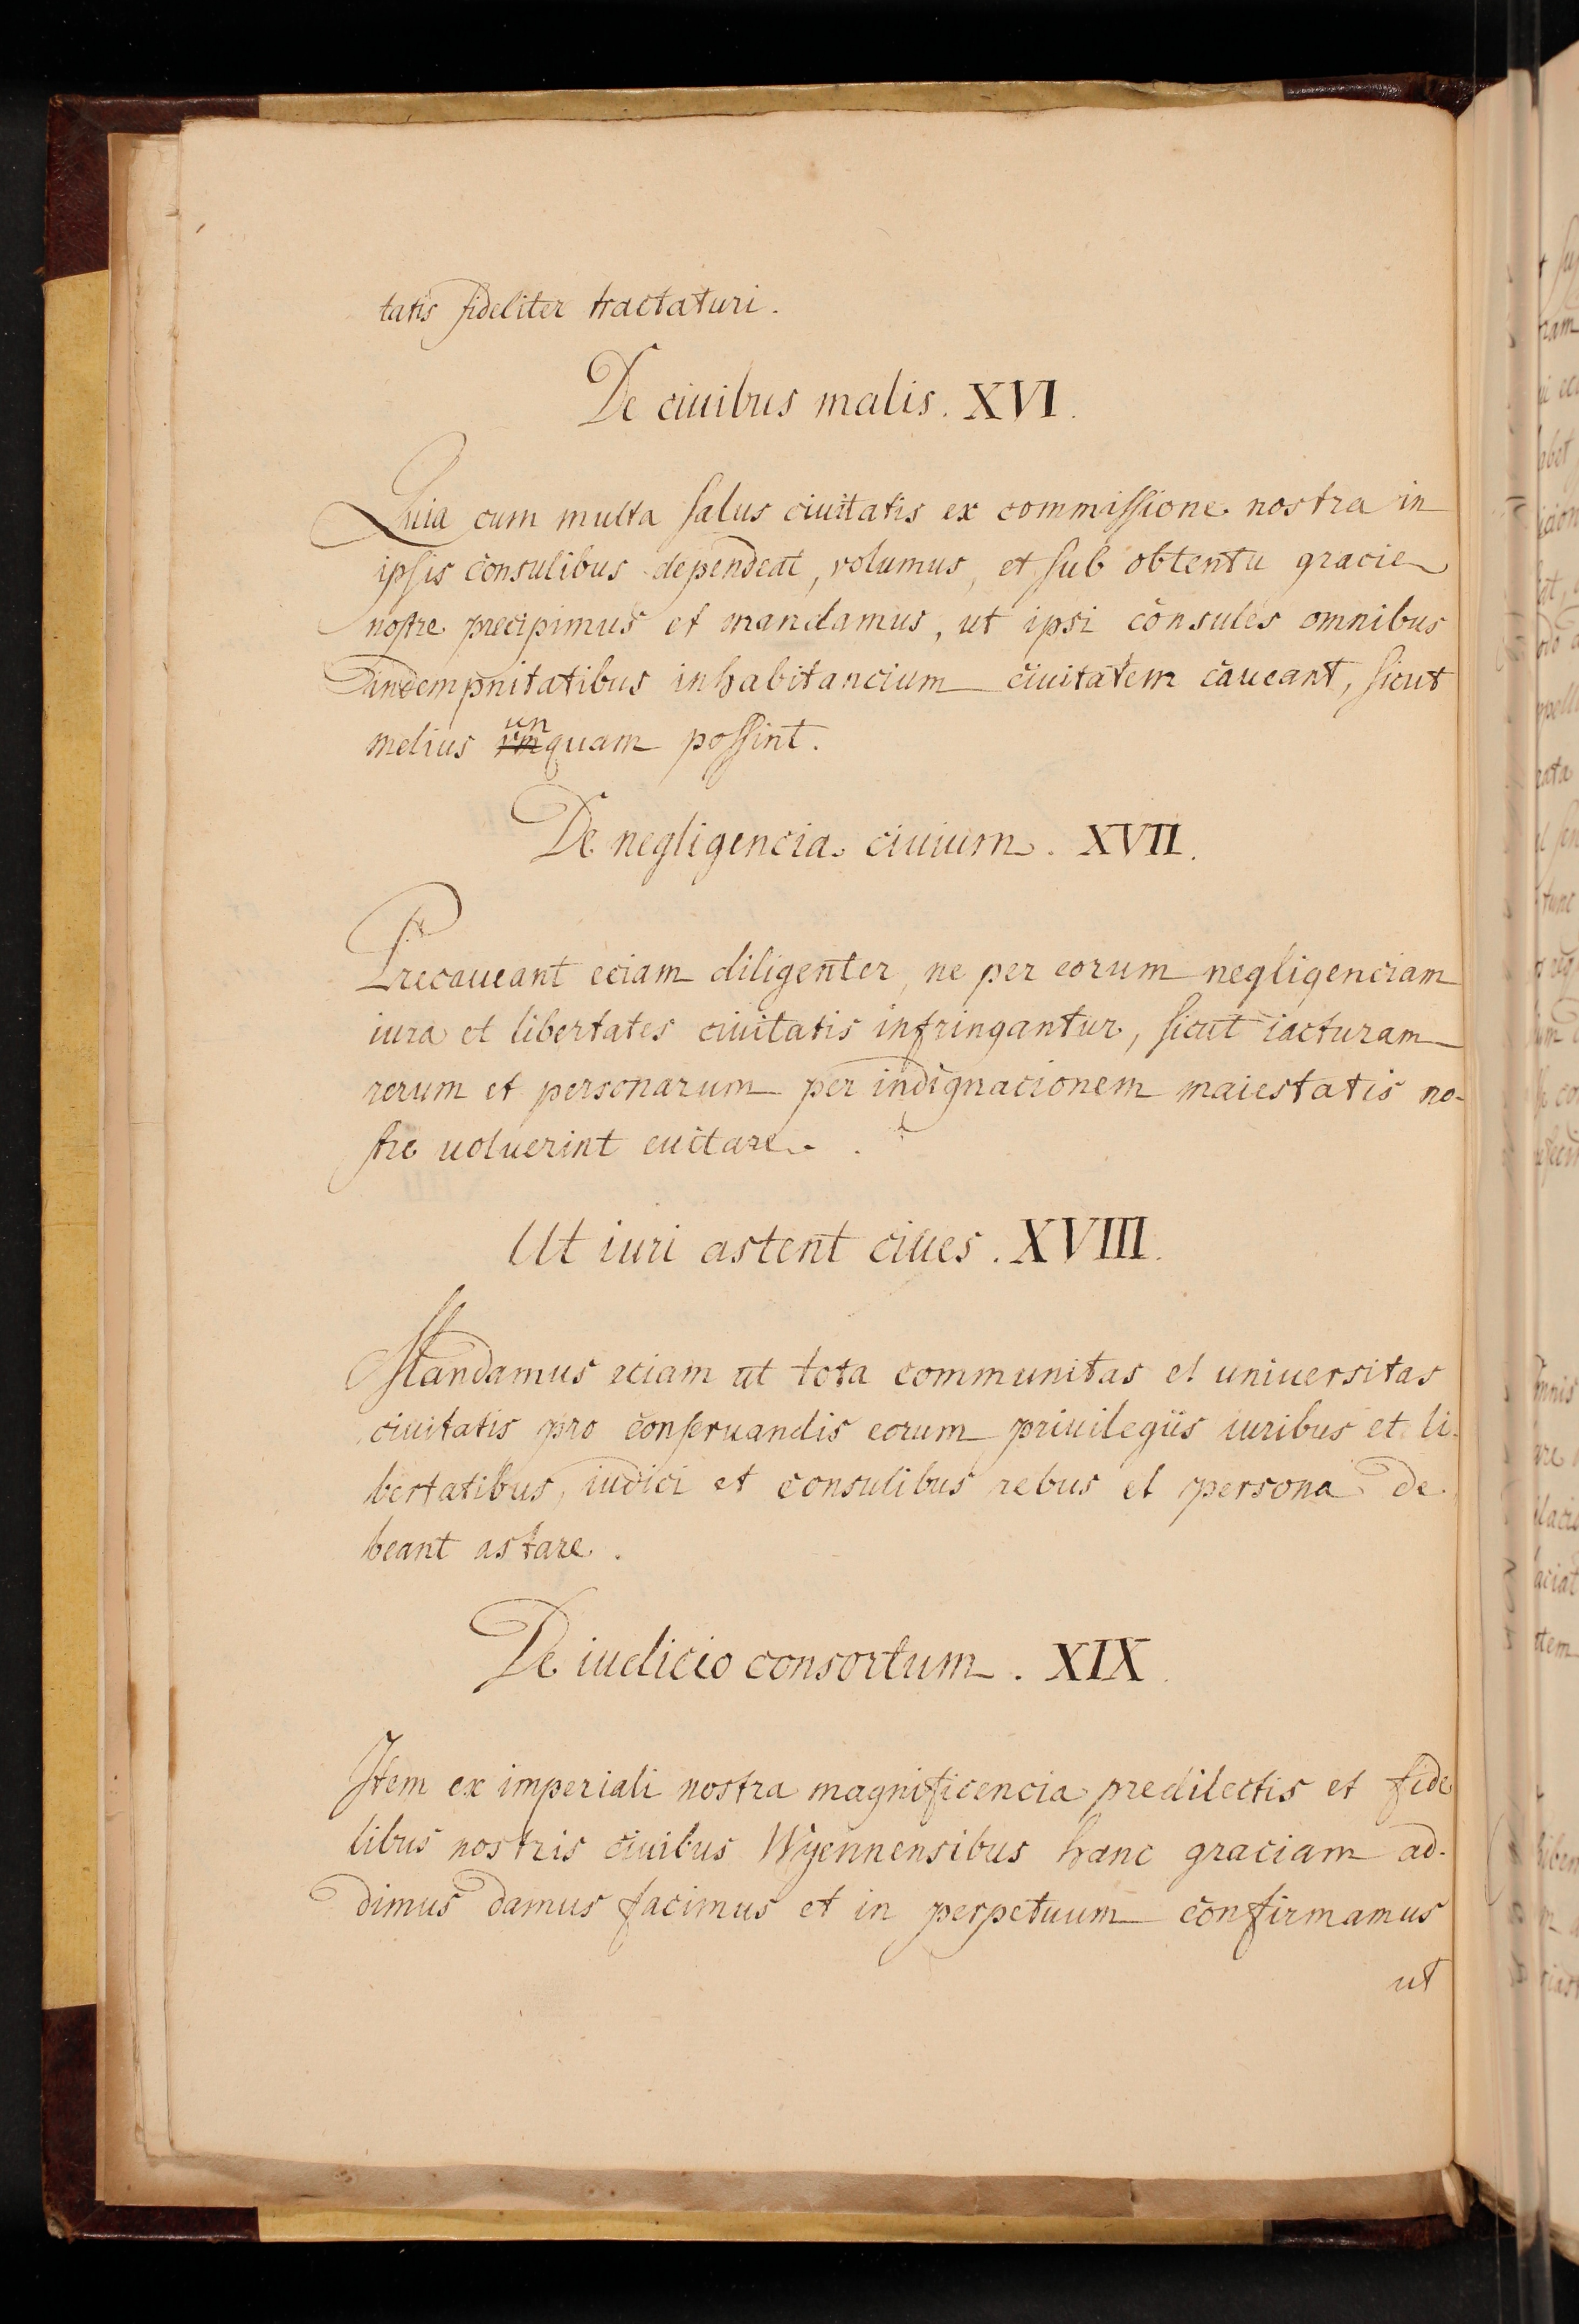 tatis fideliter tractaturi.
De ciuibus malis. XVI.
Quia cum multa salus ciuitatis ex commissione nostra in
ipsis consulibus dependeat, volumus, et sub obtentu gracie
nostre precipimus et mandamus, ut ipsi consules omnibus
indempnitatibus inhabitancium ciuitatem caueant, sicut
un
melius vmquam possint.
De negligencia ciuium. XVII.
Precaueant eciam diligenter, ne per eorum negligenciam
iura et libertates ciuitatis infringantur, sicut iacturam
rerum et personarum per indignacionem maiestatis no-
stre uoluerint euitare.
Ut iuri astent ciues. XVIII.
Mandamus eciam ut tota communitas et uniuersitas
ciuitatis pro conseruandis eorum priuilegiis iuribus et li-
bertatibus, iudici et consulibus rebus et persona de-
beant astare.
De iudicio consortum. XIX.
Item ex imperiali nostra magnificencia predilectis et fide
libus nostris ciuibus Wyennensibus hanc graciam ad-
dimus damus facimus et in perpetuum confirmamus
ut